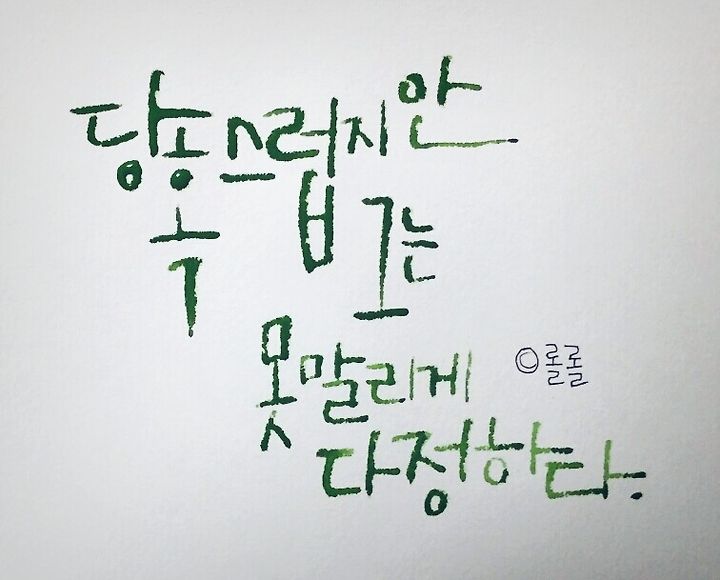 당혹스럽지만
그는
못말리게
다정하다.
©롤롤